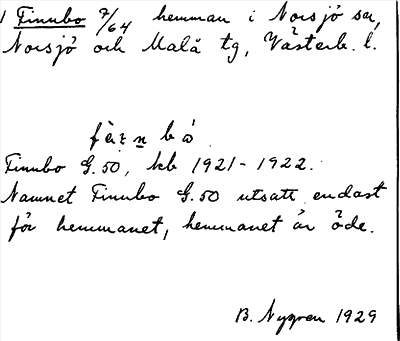 1 Finnbo 7/64 hemman i Norsjö sn,
Norsjö och Malå tg, Västerb. l.
Finnbo G.50, kb 1921-1922.
Namnet Finnbo G.50 utsatt endast
för hemmanet, hemmanet är öde.
B. Nygren 1929